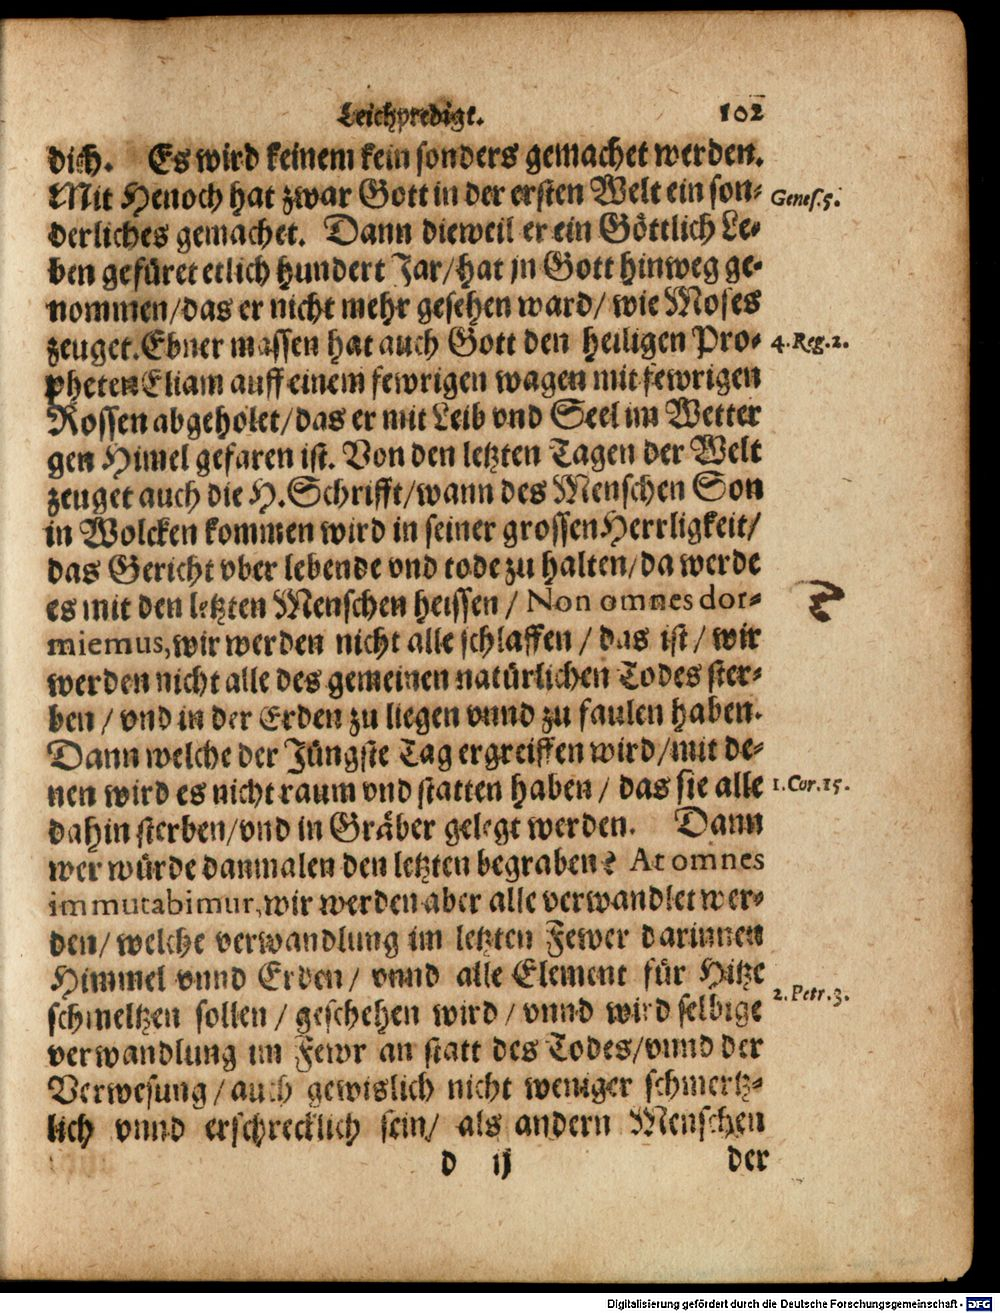 Leichpredigt. 102
dich. Es wird keinem kein sonders gemachet werden.
Mit Henoch hat zwar Gott in der ersten Welt ein son- Genes.5.
derliches gemachet. Dann dieweil er ein Göttlich Le-
ben gefüret etlich hundert Jar/hat jn Gott hinweg ge-
nommen/das er nicht mehr gesehen ward/ wie Moses
zeuget. Ebner massen hat auch Gott den heiligen Pro- 4. Reg. 2.
pheten Eliam auff einem fewrigen wagen mit fewrigen
Rossen abgeholet/das er mit Leib vnd Seel im Wetter
gen Himel gefaren ist. Von den letzten Tagen der Welt
zeuget auch die H. Schrifft/wann des Menschen Son
in Wolcken kommen wird in seiner grossen Herrligkeit/
das Gericht vber lebende vnd tode zu halten/da werde
es mit den letzten Menschen heissen / Non omnes dor-
miemus, wir werden nicht alle schlaffen / das ist / wir
werden nicht alle des gemeinen natürlichen Todes ster-
ben / vnd in der Erden zu liegen vnnd zu faulen haben.
Dann welche der Jüngste Tag ergreiffen wird/mit de-
nen wird es nicht raum vnd statten haben / das sie alle 1. Cor. 15.
dahin sterben/vnd in Gräber gelegt werden. Dann
wer würde danmalen den letzten begraben? At omnes
immutabimur, wir werden aber alle verwandlet wer-
den/ welche verwandlung im letzten Fewer darinnen
Himmel vnnd Erden/ vnnd alle Element für Hitze
schmeltzen sollen / geschehen wird / vnnd wird selbige 2. Petr. 3.
verwandlung im Fewr an statt des Todes/vnnd der
Verwesung / auch gewislich nicht weniger schmertz-
lich vnnd erschrecklich sein/ als andern Menschen
d ij der
Digitalisierung gefördert durch die Deutsche Forschungsgemeinschaft - DFG